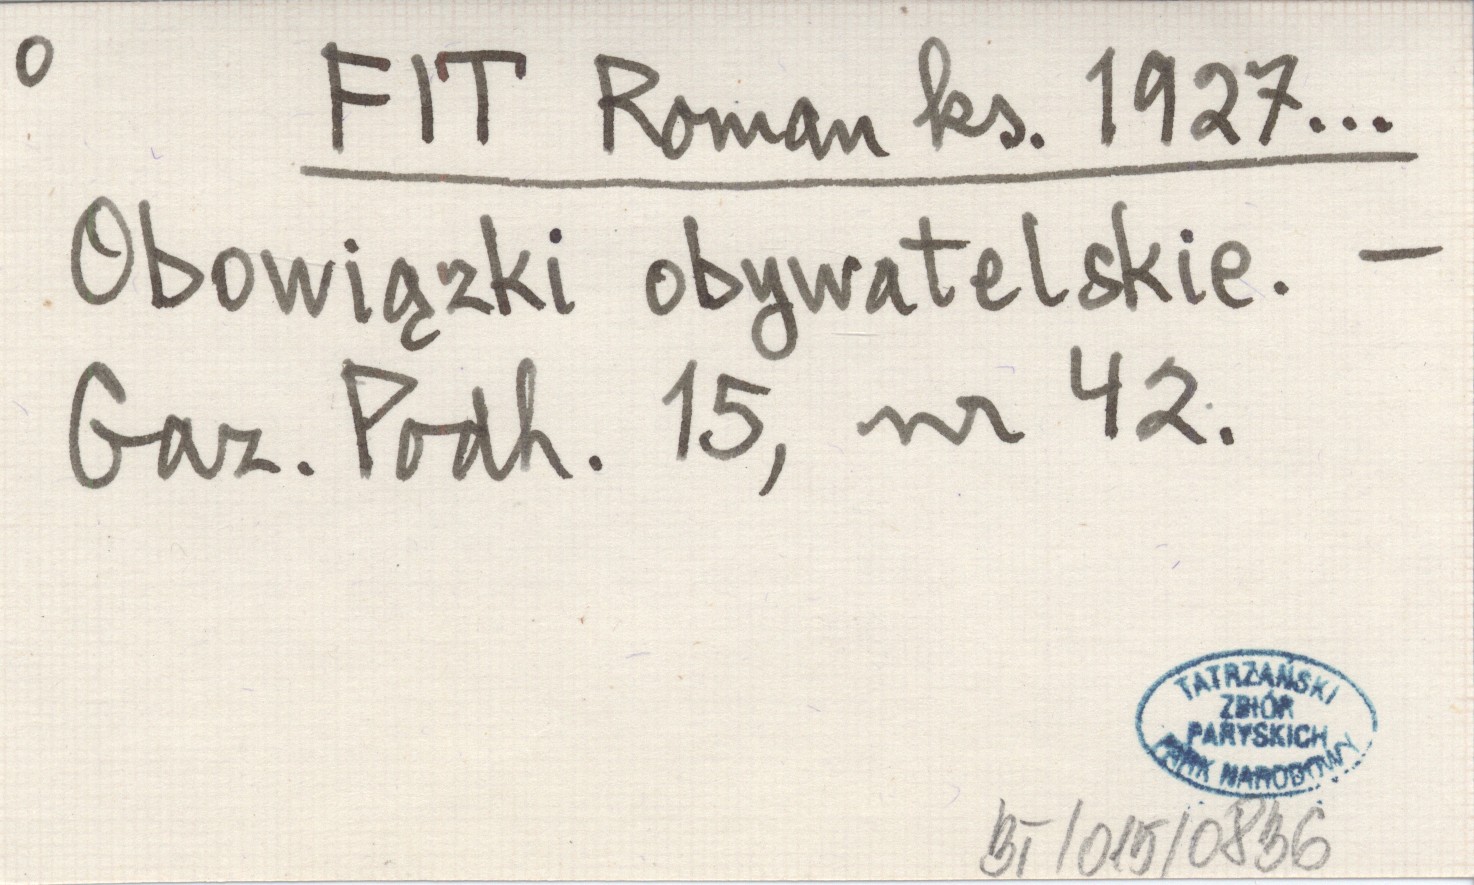 o
FIT Roman ks. 1927...
Obowiązki obywatelskie. —
Gaz. Podh. 15, nr 42.
TATRZAŃSKI
ZBIÓR
PARYSKICH
PARK NARODOWY
BT/015/0836